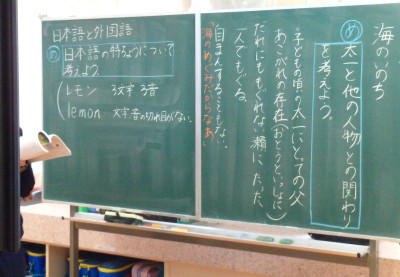 海のいのち
め 太一と他の人物との関わり
を考えよう。
子どもの頃の太一にとっての父
あこがれの存在(おとうといっしょに)
だれにももぐれない瀬に、たった
一人でもぐる。
自まんすることもない。
「海のめぐみだからなあ」
日本語と外国語
め 日本語の特ちょうについて
考えよう
レモン 3文字 3音
lemon 文字、音の切れ目がない。